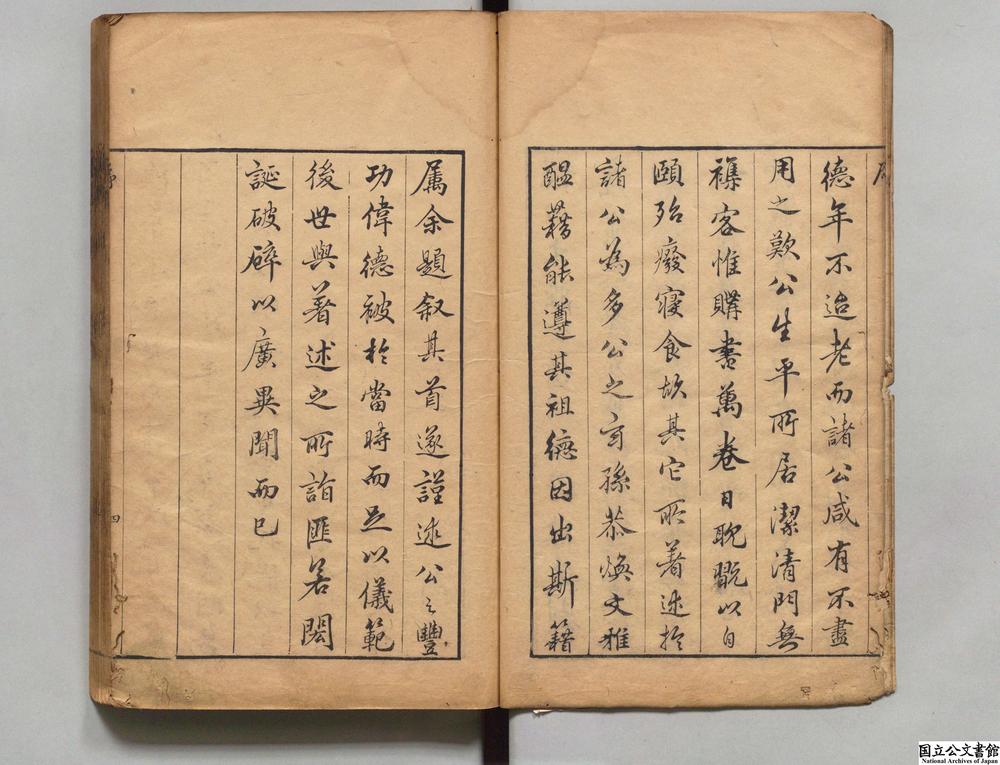 德年不迨老而諸公咸有不盡
用之歎公生平所居潔清門無
襍客惟購書萬卷日耽翫以自
頤殆癈寢食故其它所著述於
諸公為多公之孫恭煥文雅
醞藉能遵其祖德因出斯籍
属余題叙其首遂謹述公之豐
功偉德被於當時而足以儀範
後世與著述之所詣匪若閎
誕破碎以廣異聞而已
四
国立公文書館
National Archives of Japan